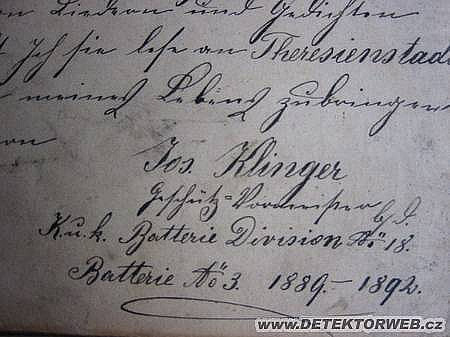 Liedern und Gedichten
Ich sie lese an Theresienstad
meines Lebens zubringen
Jos. Klinger
Geschütz-Vormeister b. d.
K. u. k. Batterie Division No 18.
Batterie No 3. 1889.-1892.
WWW.DETEKTORWEB.CZ